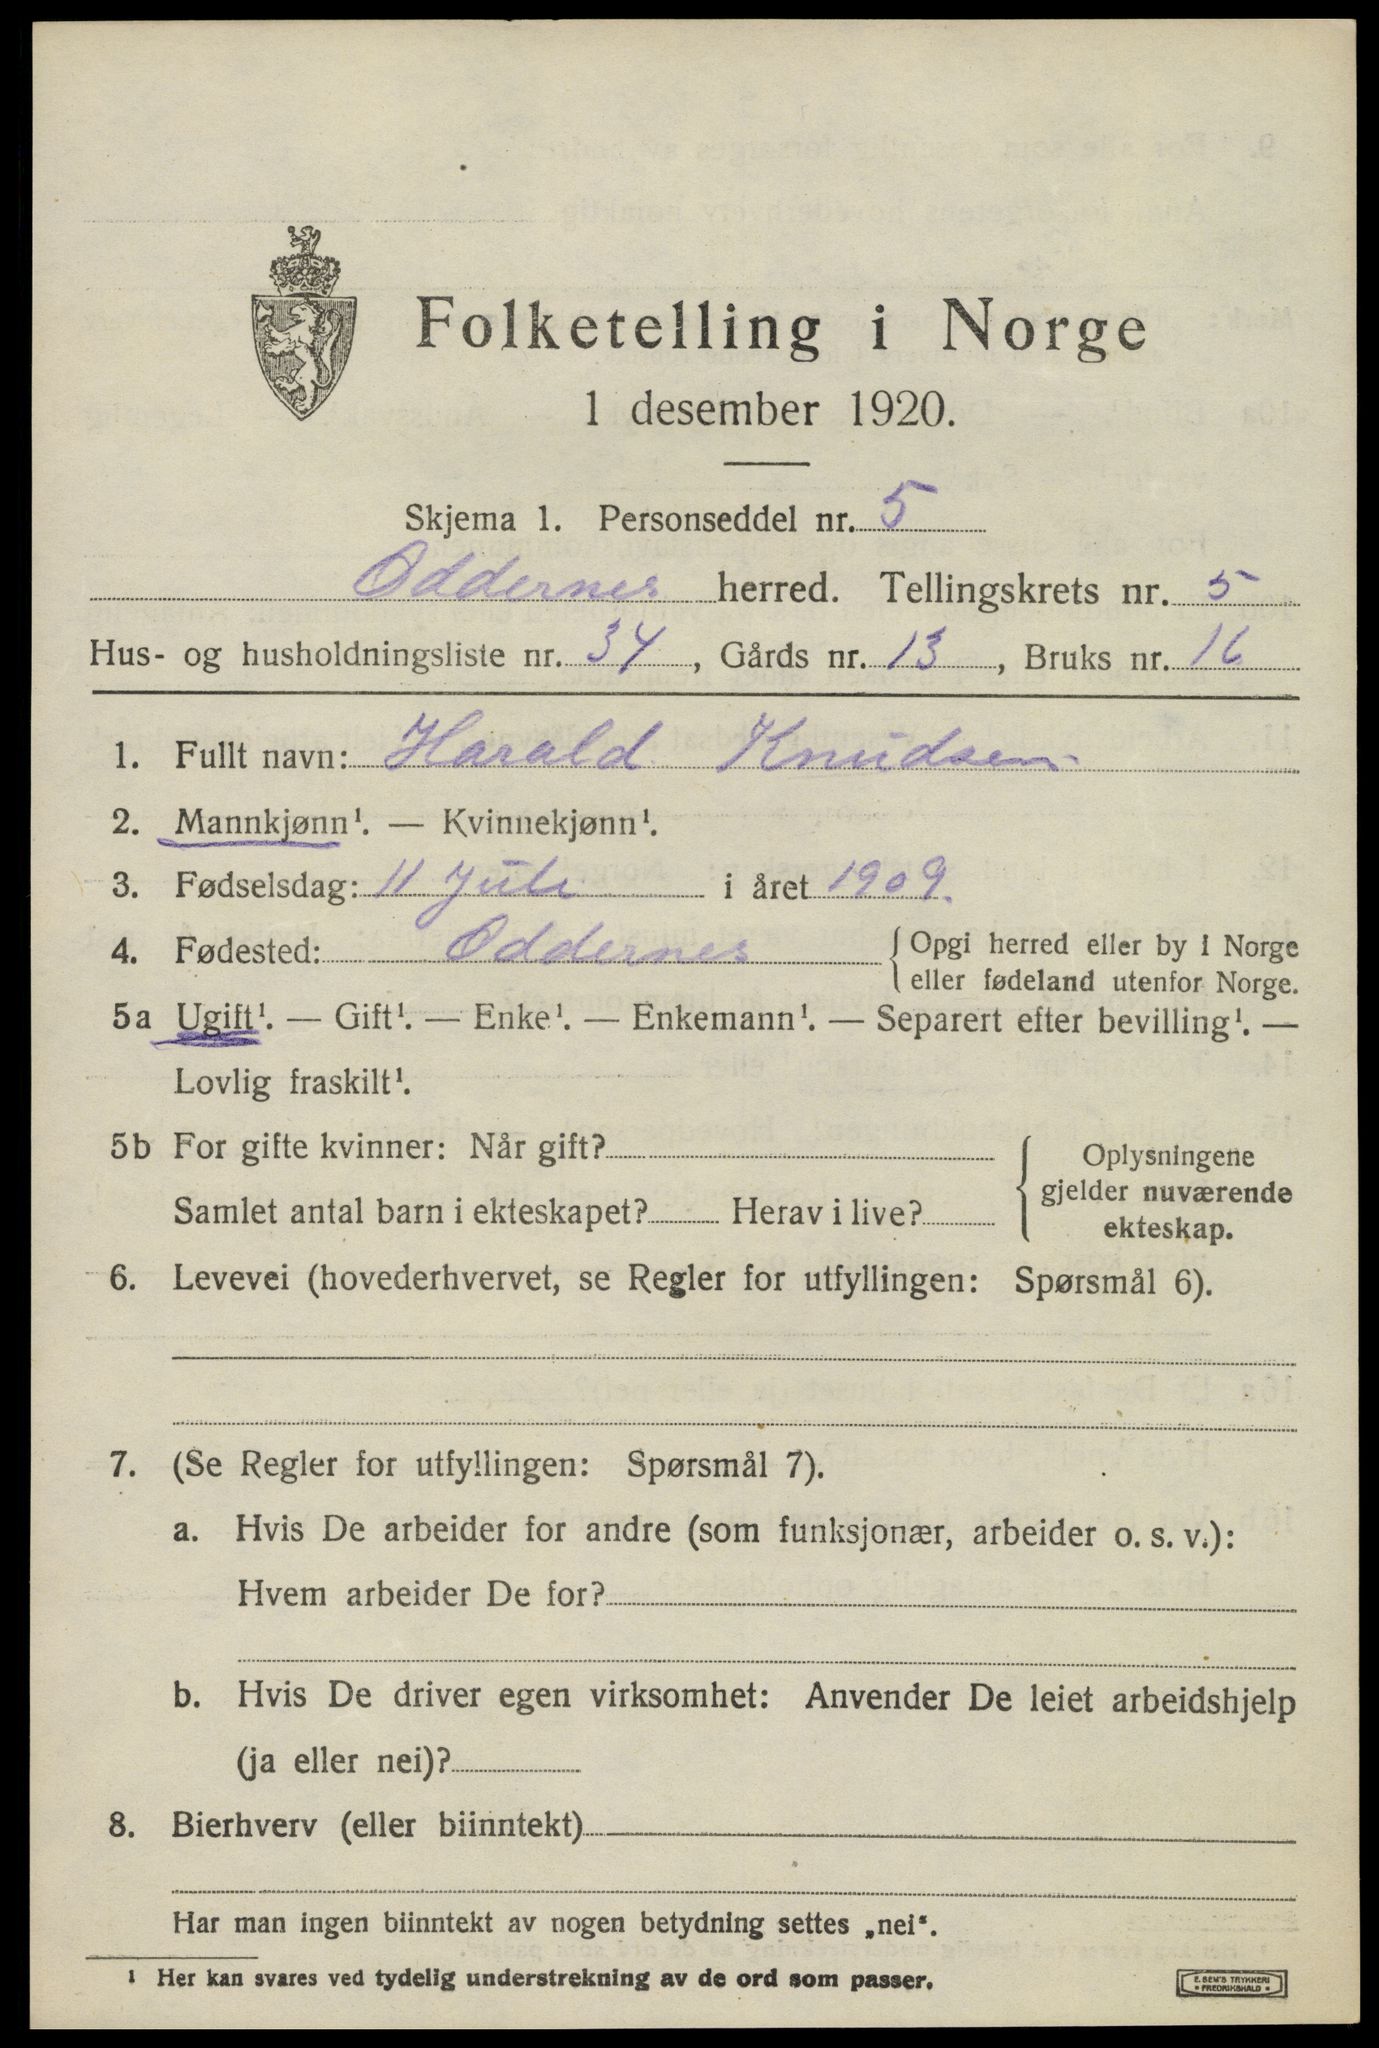 Folketelling i Norge
1 desember 1920.
Skjema 1. Personseddel nr. 5
Oddernes herred. Tellingskrets nr. 5
Hus- og husholdningsliste nr. 34, Gårds nr. 13, Bruks nr. 16
1. Fullt navn: Harald Knudsen
2. Mannkjønn¹. — Kvinnekjønn¹.
3. Fødselsdag: 11 Juli i året 1909.
4. Fødested: Oddernes { Opgi herred eller by i Norge
eller fødeland utenfor Norge.
5a Ugift¹. — Gift¹. — Enke¹. — Enkemann¹. — Separert efter bevilling¹. —
Lovlig fraskilt¹.
5b For gifte kvinner: Når gift?
Samlet antal barn i ekteskapet? Herav i live?
Oplysningene
gjelder nuværende
ekteskap.
6. Levevei (hovederhvervet, se Regler for utfyllingen: Spørsmål 6).
7. (Se Regler for utfyllingen: Spørsmål 7).
a. Hvis De arbeider for andre (som funksjonær, arbeider o. s. v.):
Hvem arbeider De for?
b. Hvis De driver egen virksomhet: Anvender De leiet arbeidshjelp
(ja eller nei)?
8. Bierhverv (eller biinntekt)
Har man ingen biinntekt av nogen betydning settes „nei“.
¹ Her kan svares ved tydelig understrekning av de ord som passer.
E. SEM'S TRYKKERI
• FREDRIKSHALD •